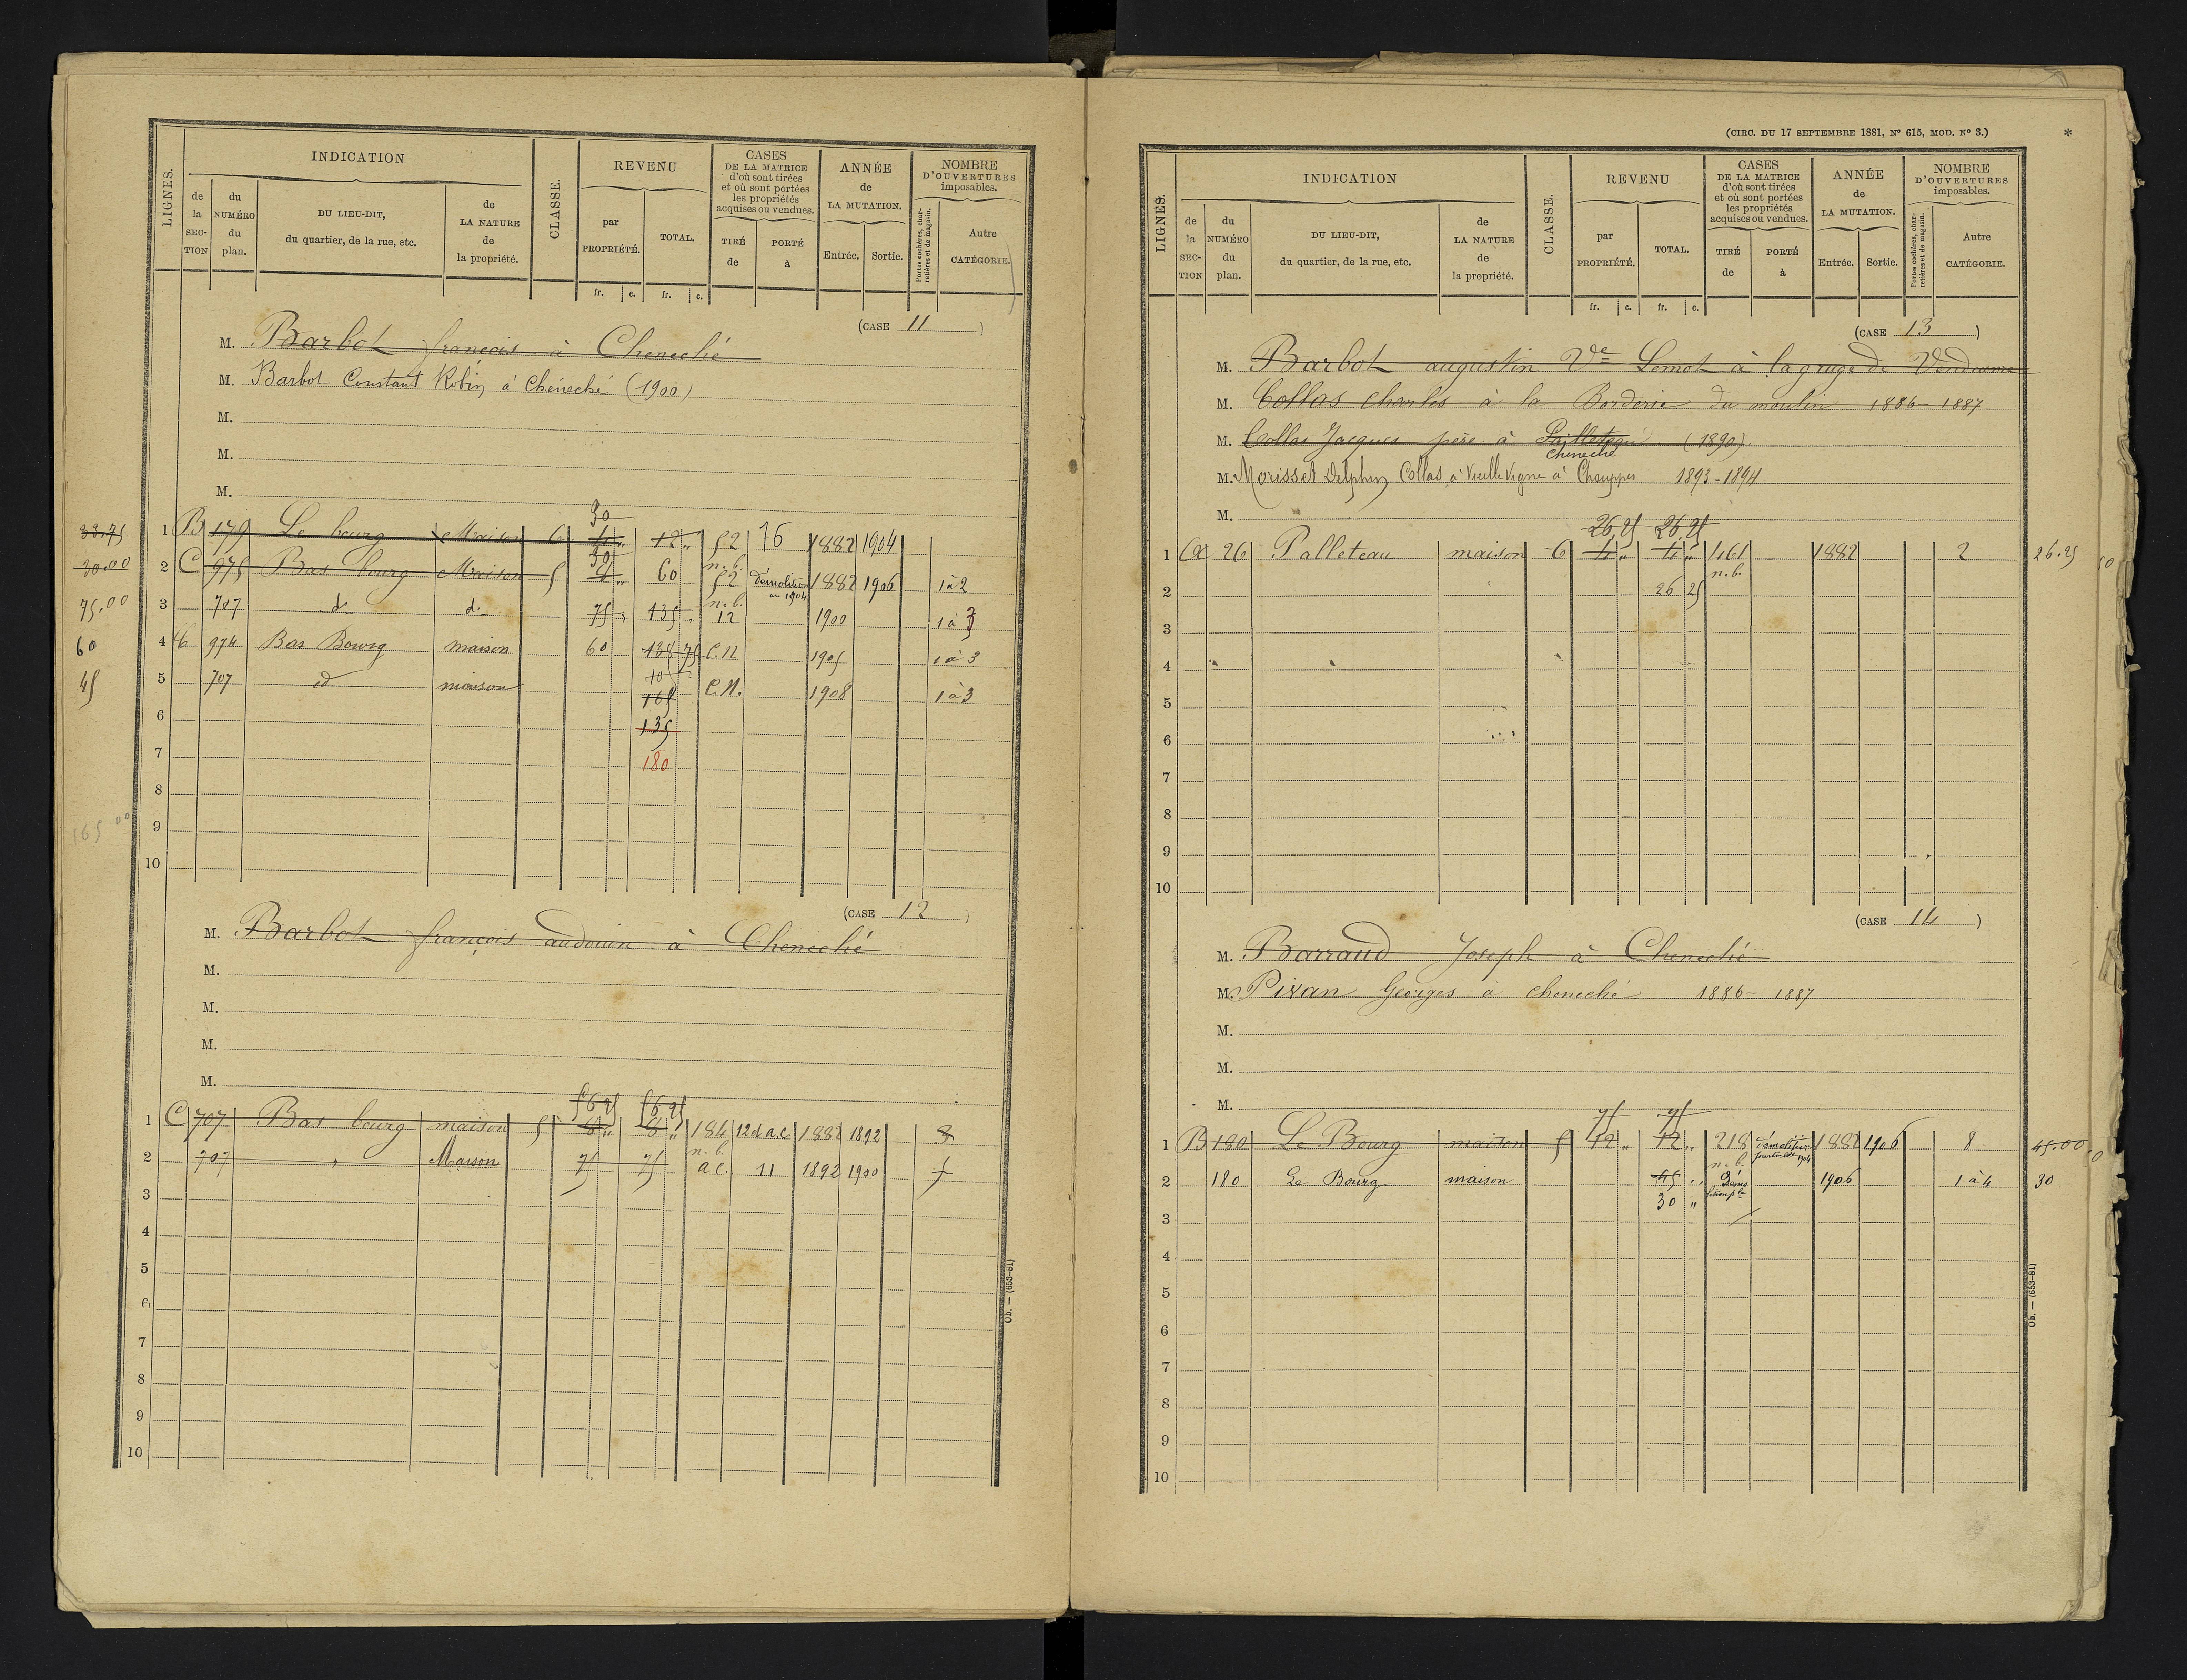 LIGNES.
INDICATION
de la SECTION
du NUMÉRO du plan.
DU LIEU-DIT, du quartier, de la rue, etc.
de LA NATURE de la propriété.
CLASSE.
REVENU
par PROPRIÉTÉ.
TOTAL.
fr. c. fr. c.
CASES DE LA MATRICE d'où sont tirées et où sont portées les propriétés acquises ou vendues.
TIRÉ de
PORTÉ à
ANNÉE de LA MUTATION.
Entrée. Sortie.
NOMBRE D'OUVERTURES imposables.
Portes cochères, charretières et de magasin.
Autre CATÉGORIE.
(CASE 11)
M. Barbot françois à Cheneché
M. Barbot Constant Robin à Chéneché (1900)
M.
M.
M.
30
33.75 1 B 179 Le bourg Maison 6 12 " 52 76 1882 1904
30
n.b.
30.00 2 C 975 Bas bourg Maison 5 60 52 Démolition en 1904 1882 1906 1à2
n.b.
75.00 3 707 do do 75 " 135 " 12 1900 1à3
60 4 C 974 Bas Bourg maison 60 138 75 C.N 1905 1à3
10
45 5 707 id maison 165 C.N. 1908 1à3
6 135
7 180
8
165 00 9
10
(CASE 12)
M. Barbot françois audouin à Cheneché
M.
M.
M.
M.
56 25 56 25
1 C 707 Bas bourg maison 5 8 " 8 " 184 12 d a.c 1882 1892 3
n.b.
2 707 " Maison 75 75 a c. 11 1892 1900
3
4
5
6
7
8
9
10
Ob. — (653-81)
(CIRC. DU 17 SEPTEMBRE 1881, N° 615, MOD. N° 3.) *
LIGNES.
INDICATION
de la SECTION
du NUMÉRO du plan.
DU LIEU-DIT, du quartier, de la rue, etc.
de LA NATURE de la propriété.
CLASSE.
REVENU
par PROPRIÉTÉ.
TOTAL.
fr. c. fr. c.
CASES DE LA MATRICE d'où sont tirées et où sont portées les propriétés acquises ou vendues.
TIRÉ de
PORTÉ à
ANNÉE de LA MUTATION.
Entrée. Sortie.
NOMBRE D'OUVERTURES imposables.
Portes cochères, charretières et de magasin.
Autre CATÉGORIE.
(CASE 13)
M. Barbot augustin Ve Lemot à la gruge de Vendeuvre
M. Collas Charles à la Borderie du moulin 1886-1887
M. Collas Jacques père à Pailleteau (1890)
Cheneché
M. Morisset Delphin Collas à Vieille Vigne à Chouppes 1893-1894
M.
26,25 26,25
1 A 26 Palleteau maison 6 4 " 4 " 161 1882 2 26.25
n.b.
2 26 25
3
4
5
6
7
8
9
10
(CASE 14)
M. Barraud Joseph à Cheneché
M. Pivan Georges à cheneché 1886-1887
M.
M.
M.
75 75
1 B 180 Le Bourg maison 5 12 " 12 " 218 démolition partielle 1904 1882 1906 8 45.00
n.b.
2 180 Le Bourg maison 45 " Démolition ple 1906 1à4 30
30 "
3
4
5
6
7
8
9
10
Ob. — (653-81)